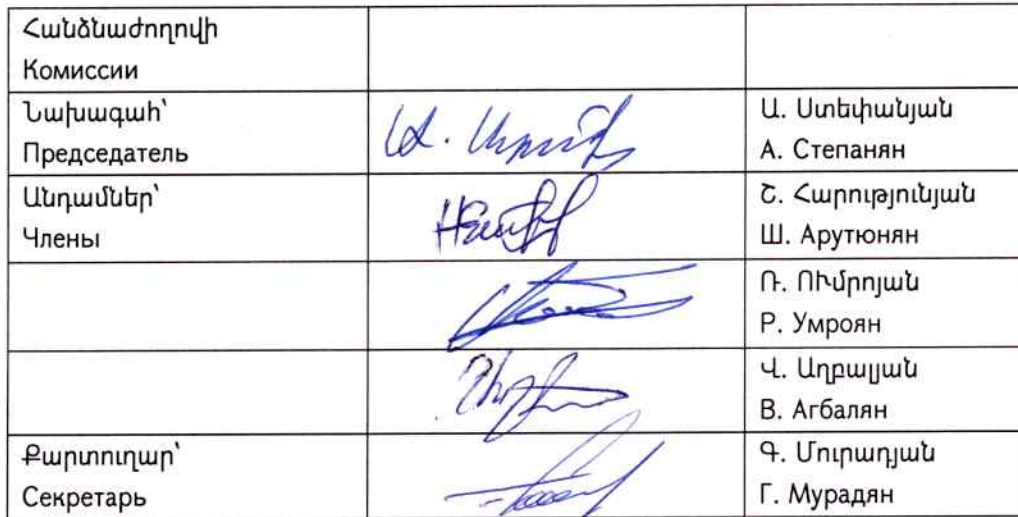 Հանձնաժողովի
Комиссии
Նախագահ՝
Председатель
Ա. Ստեփանյան
А. Степанян
Անդամներ՝
Члены
Շ. Հարությունյան
Ш. Арутюнян
Ռ. ՈՒմրոյան
Р. Умроян
Վ. Աղբալյան
В. Агбалян
Քարտուղար՝
Секретарь
Գ. Մուրադյան
Г. Мурадян